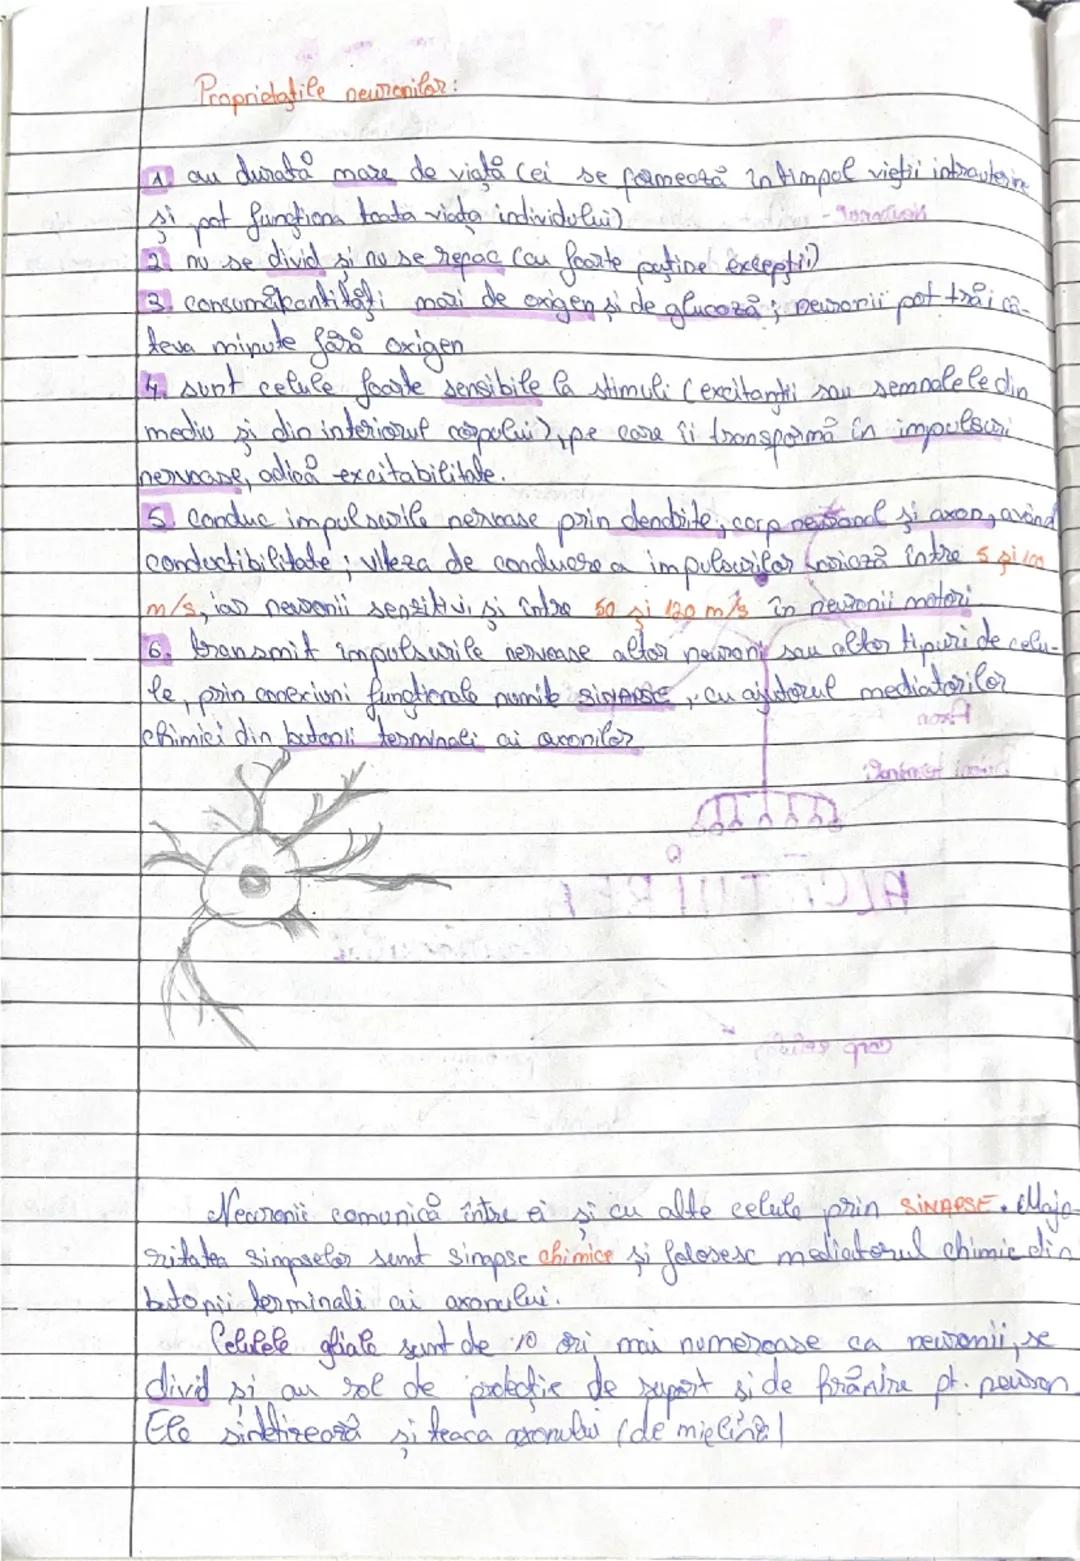 Proprietațile neuronilor:
1. au durată mare de viață (ei se formează în timpul vieții intrauterine
și pot funcționa toata viața individului)
2. nu se divid și nu se refac (cu foarte puține excepții)
3. consumă cantități mari de oxigen și de glucoză; neuronii pot trăi câ-
teva minute fără oxigen
4. sunt celule foarte sensibile la stimuli (excitanții sau semnalele din
mediu și din interiorul corpului), pe care îi transformă în impulsuri
nervoase, adică excitabilitate.
5. Conduc impulsurile nervoase prin dendrite, corp neuronal și axon, având
conductibilitate; viteza de conducere a impulsurilor variază între 5 și 100
m/s, iar neuronii senzitivi și între 50 și 120 m/s în neuronii motori.
6. transmit impulsurile nervoase altor neuroni sau altor tipuri de celu-
le, prin conexiuni funcționale numite SINAPSE, cu ajutorul mediatorilor
chimici din butonii terminali ai axonilor
Neuronii comunică între ei și cu alte celule prin SINAPSE. Majo-
ritatea sinapselor sunt sinapse chimice și folosesc mediatorul chimic din
butonii terminali ai axonului.
Celulele gliale sunt de 10 ori mai numeroase ca neuronii, se
divid și au rol de protecție de suport și de hrănire pt. neuron
Ele sintetizează și teaca axonului (de mielină)